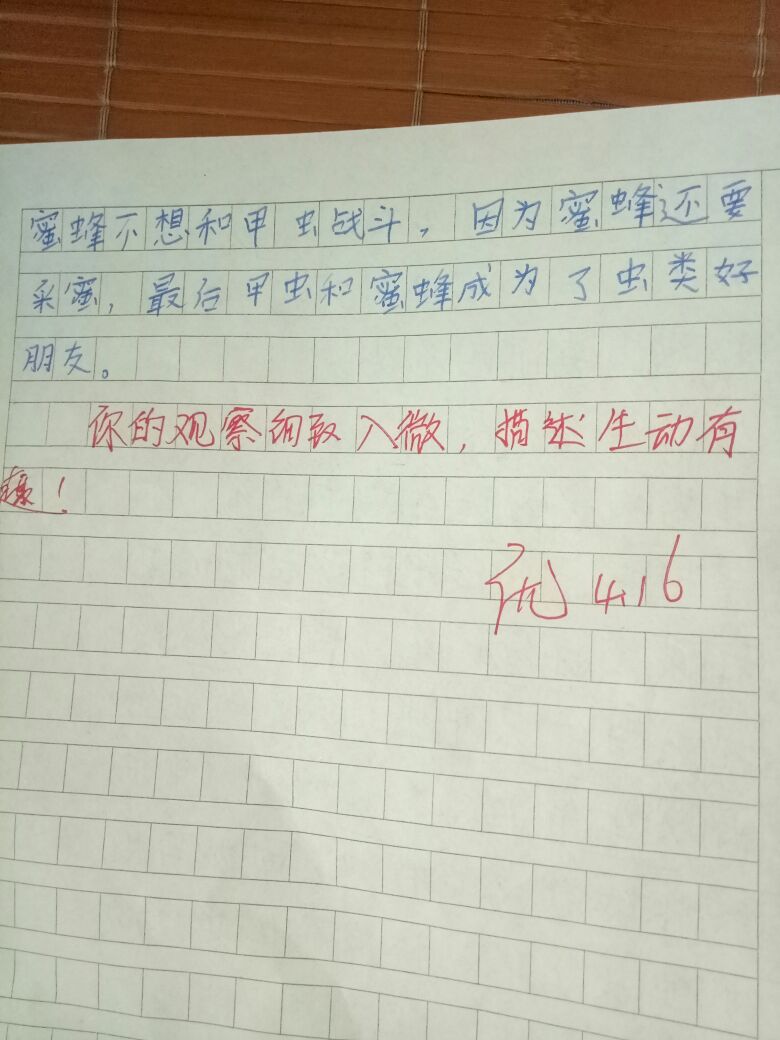 蜜蜂不想和甲虫战斗，因为蜜蜂还要
采蜜，最后甲虫和蜜蜂成为了虫类好
朋友。
你的观察细致入微，描述生动有
趣！
优 4.16